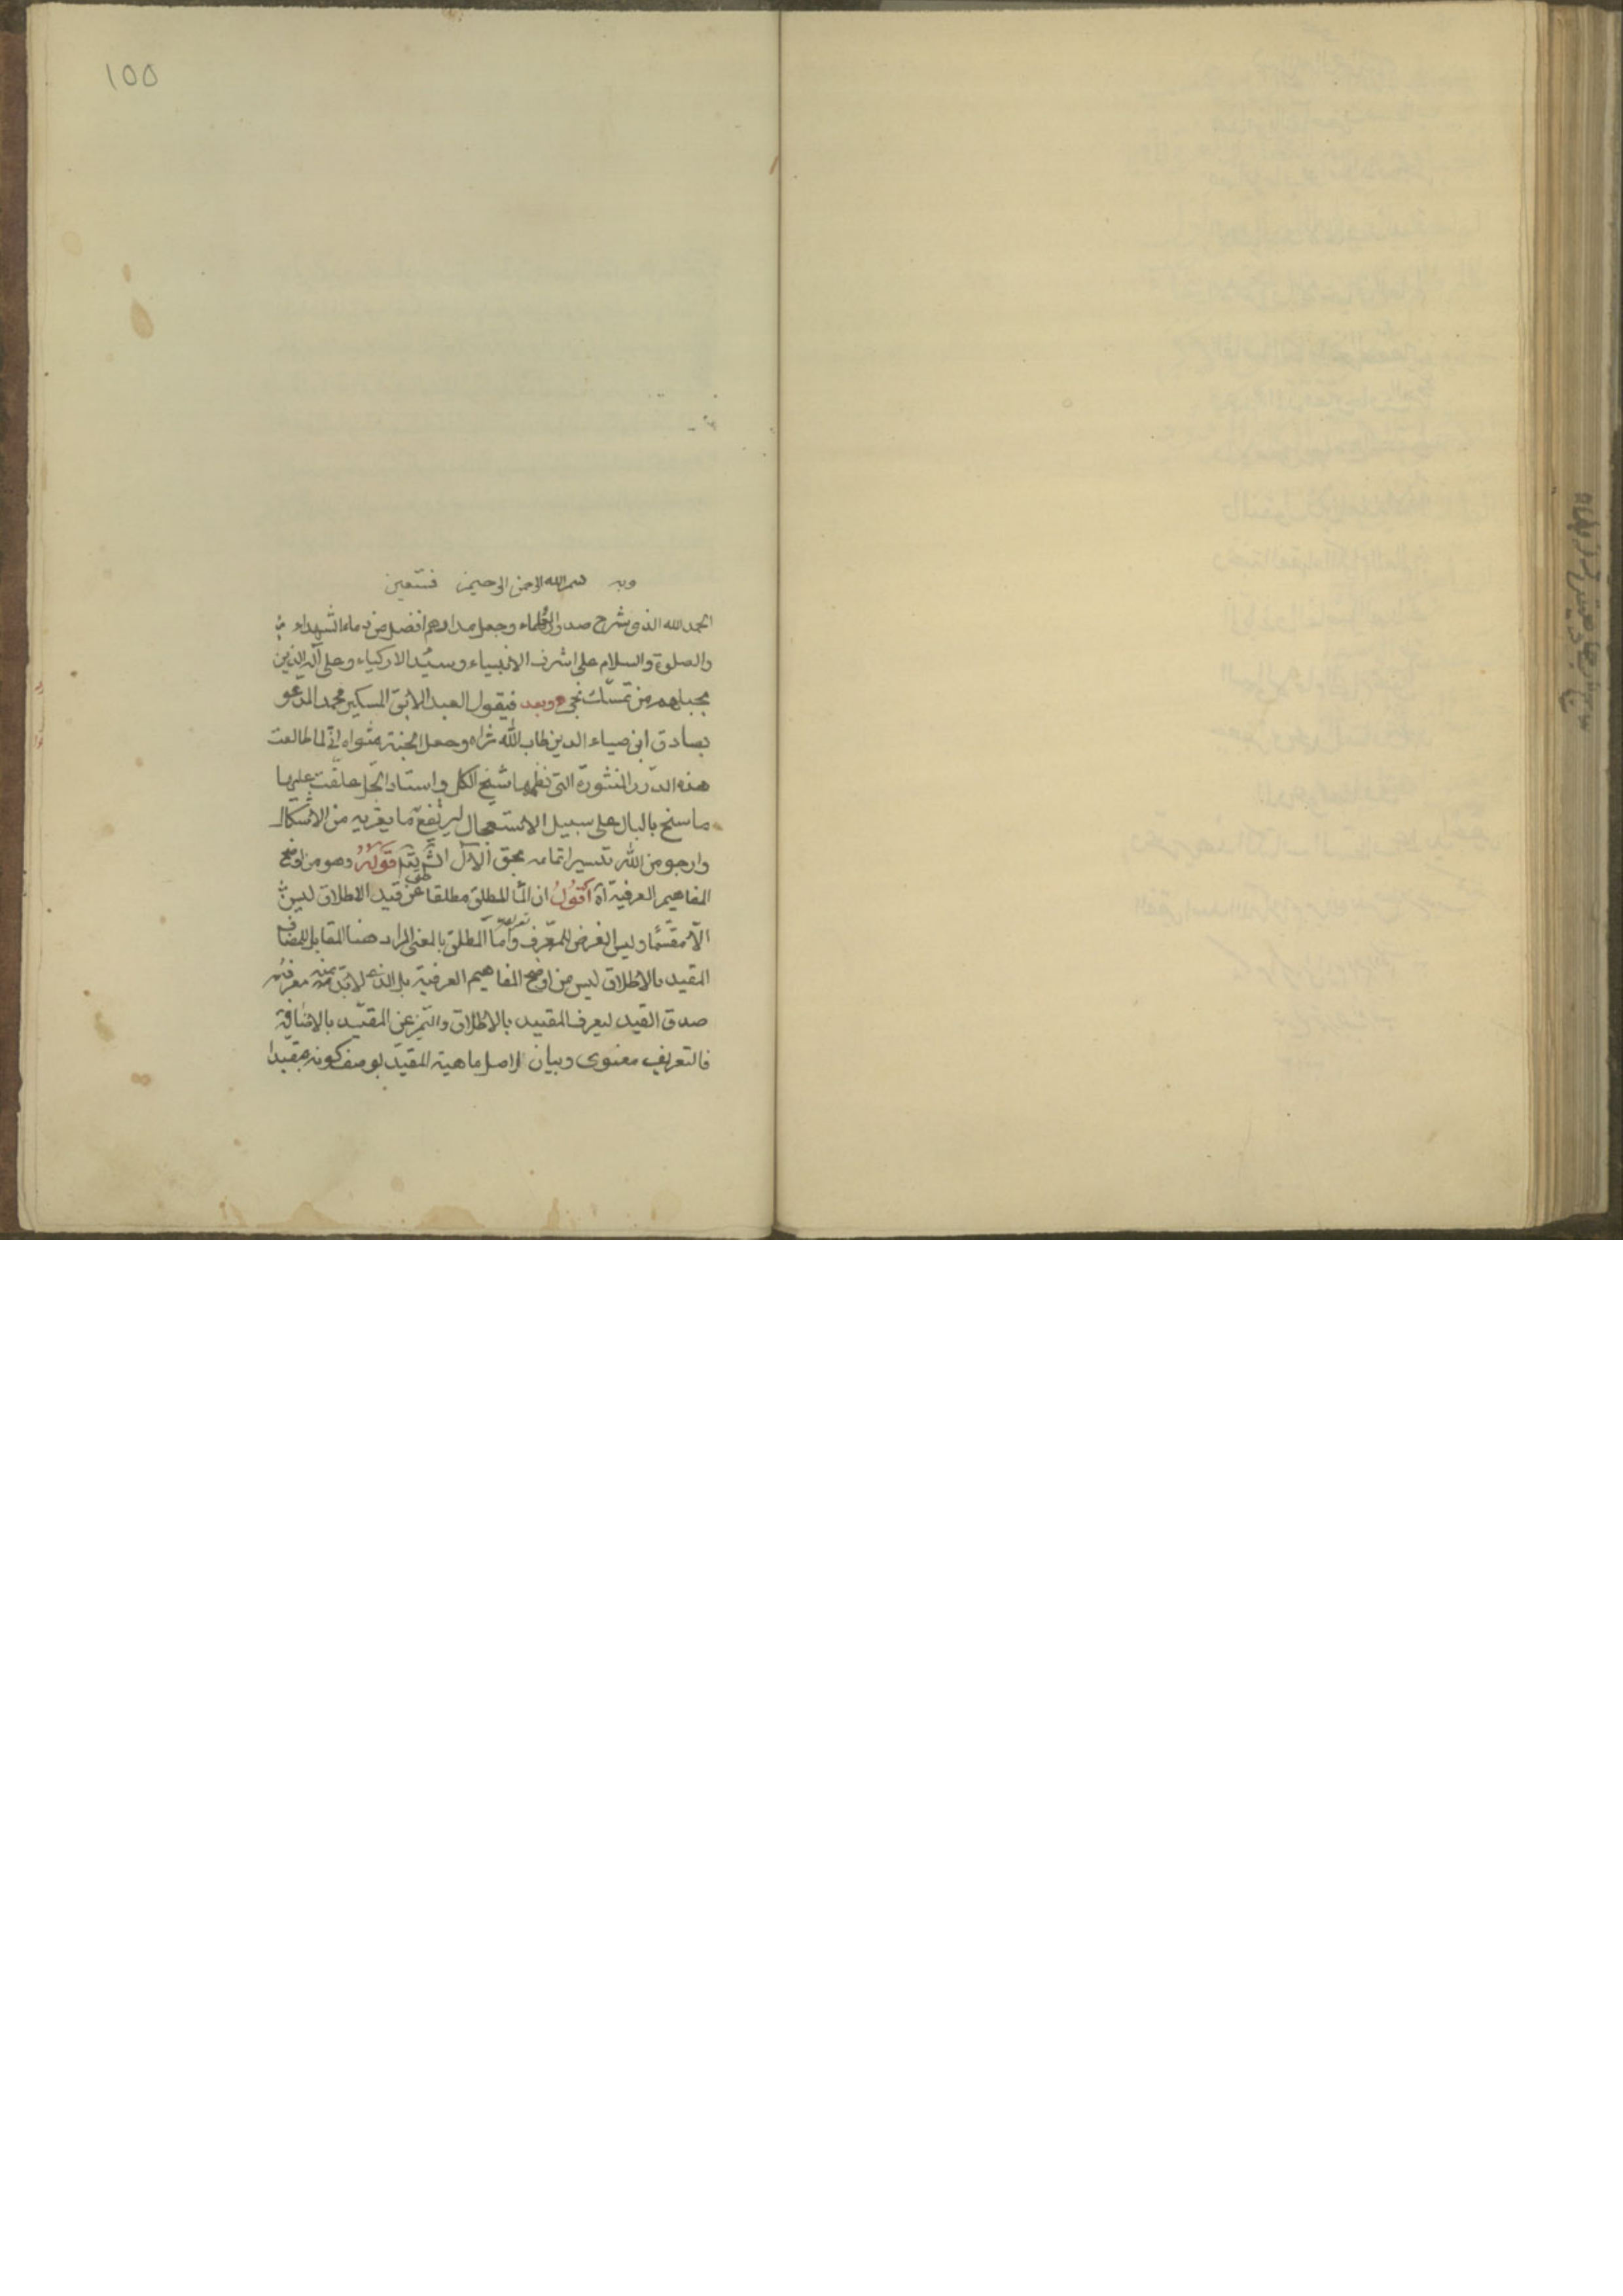 ١٥٥
وبه بسم الله الرحمن الرحيم نستعين
الحمد لله الذى شرح صدور العلماء وجعل مدادهم افضل من دماء الشهداء
والصلوة والسلام على اشرف الانبياء وسيد الازكياء وعلى آله الذين
بحبلهم من تمسك نجى وبعد فيقول العبد الابق المسكين محمد المدعو
بصادق ابن ضياء الدين طاب الله ثراه وجعل الجنة مثواه انى لما طالعت
هذه الدرر المنثورة التى نظمها شيخ الكل واستاد الجل علقت عليها
ما سنح بالبال على سبيل الاستعجال ليرتفع ما يعتريه من الاشكال
وارجو من الله تيسير اتمامه بحق الآل قوله وهو من اوضح
المفاهيم العرفية آه اقول ان الماء المطلق مطلقا عن قيد الاطلاق ليس
الا مقسما وليس الغرض المعرف واما المطلق بالمعنى المراد هنا المقابل للمضاف
المقيد بالاطلاق ليس من اوضح المفاهيم العرفية بل الذى لا بد منه معرفة
صدق القيد ليعرف المقييد بالاطلاق والتميز عن المقيد بالاضافة
فالتعريف معنوى وبيان لاصل ماهية المقيد بوصف كونه مقيدا